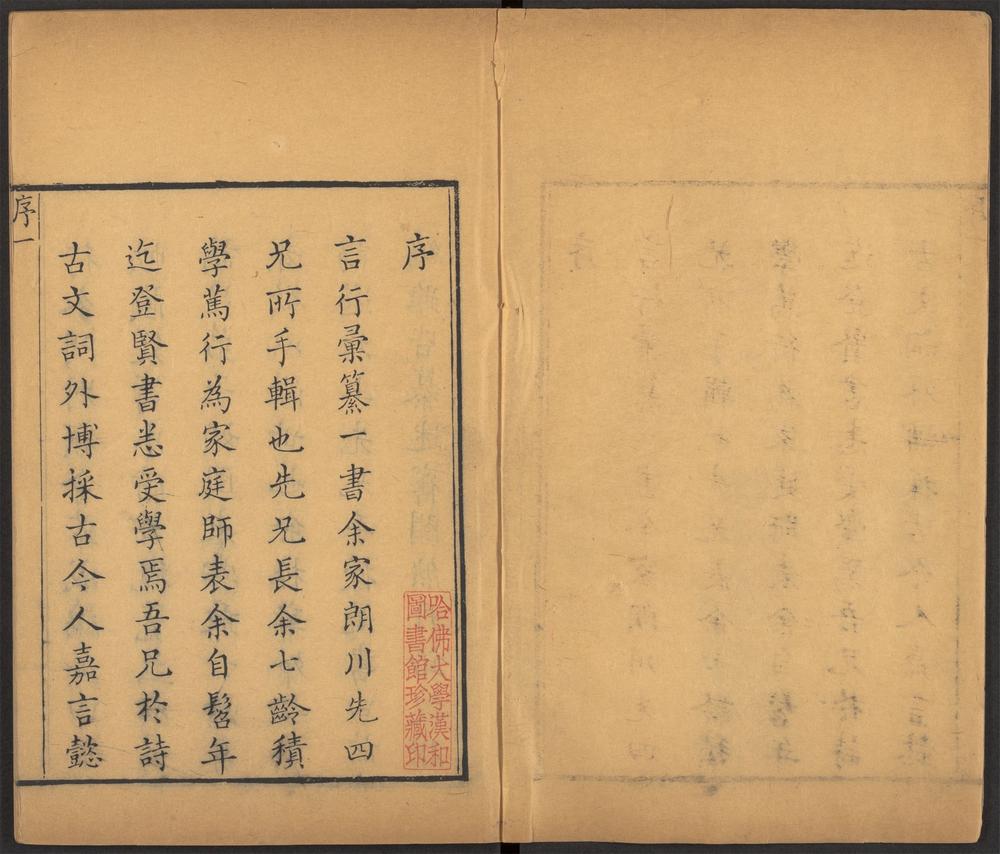 序
言行彚纂一書余家朗川先四
兄所手輯也先兄長余七齡積
學篤行為家庭師表余自髫年
迄登賢書悉受學焉吾兄於詩
古文詞外博採古今人嘉言懿
序一
哈佛大學漢和
圖書館珍藏印